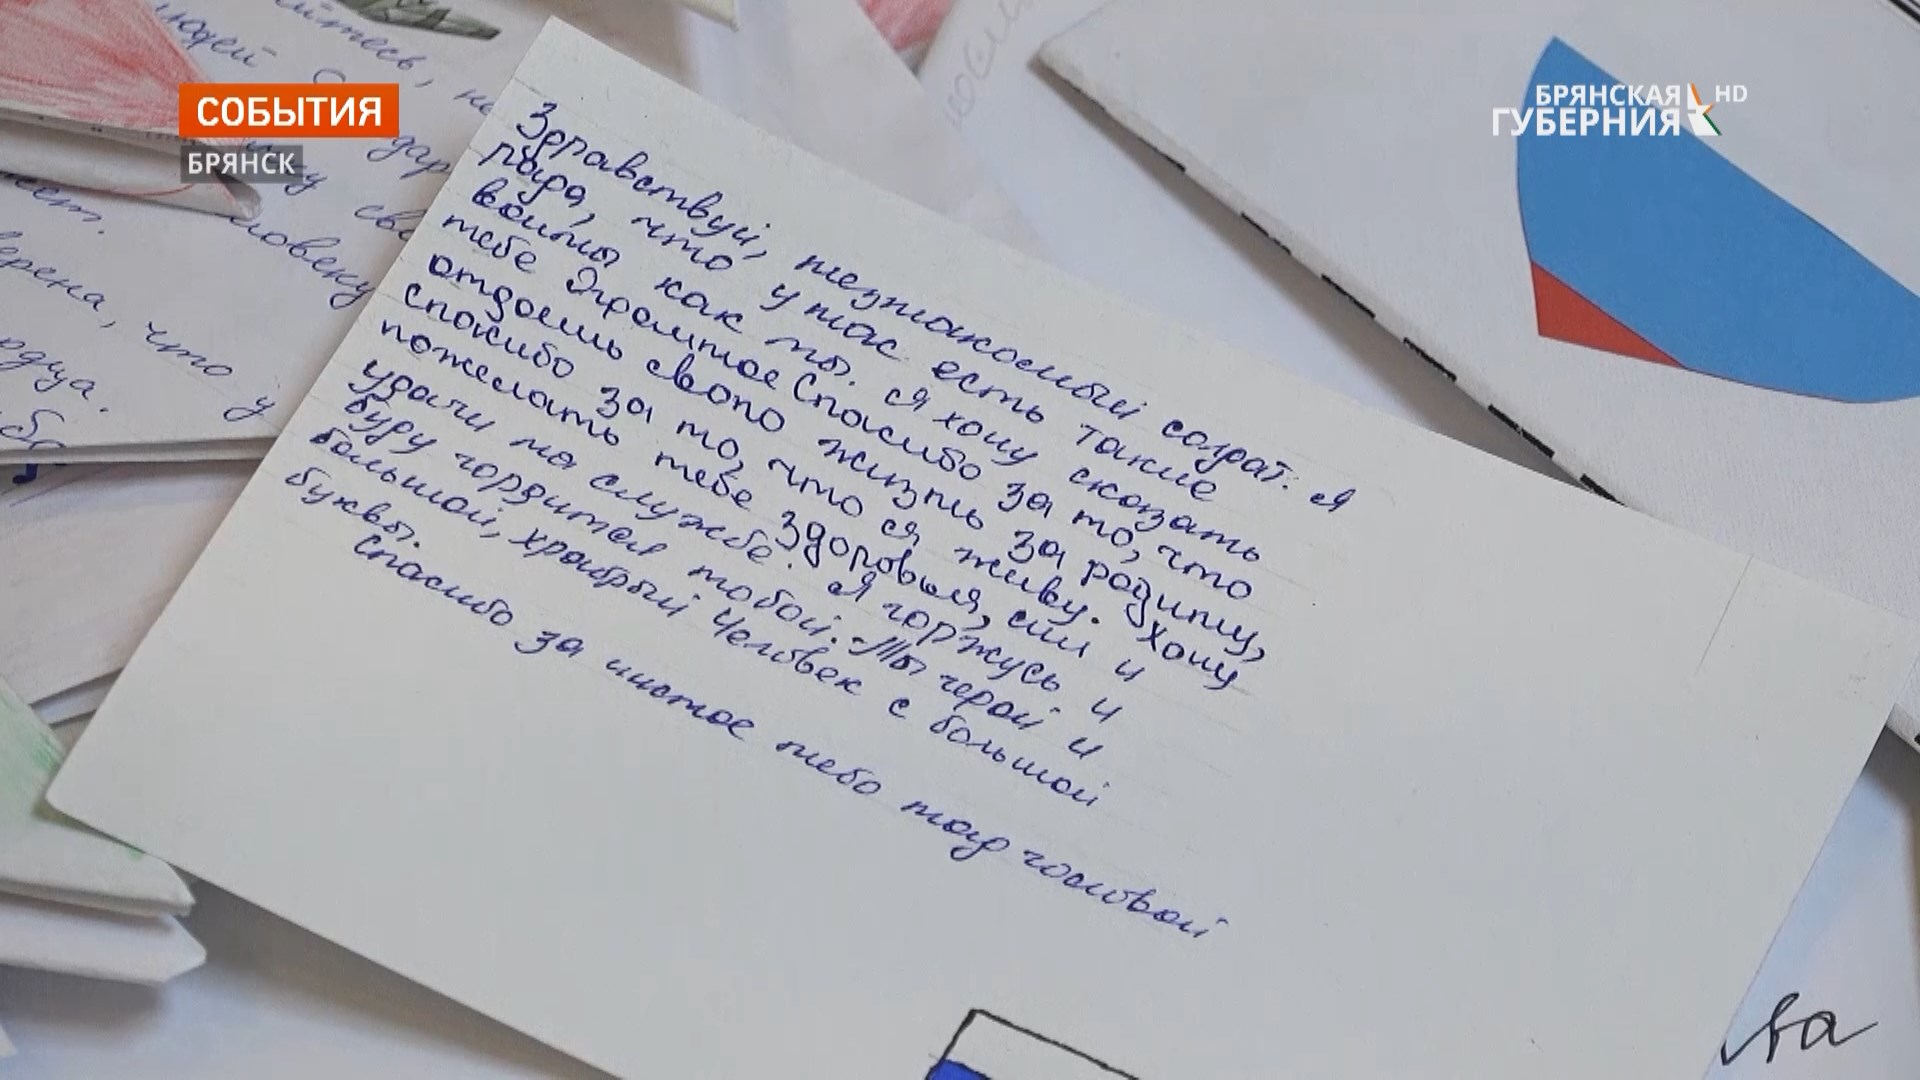 СОБЫТИЯ
БРЯНСК
БРЯНСКАЯ HD
ГУБЕРНИЯ
Здравствуй, незнакомый солдат. Я
рада, что у нас есть такие
воины как ты. Я хочу сказать
тебе Огромное Спасибо за то, что
отдаешь свою жизнь за родину,
Спасибо за то, что я живу. Хочу
пожелать тебе здоровья, сил и
удачи на службе. Я горжусь и
буду гордится тобой. Ты герой и
большой, храбрый Человек с большой
буквы.
Спасибо за чистое небо над головой
людей
человеку
что у
ва